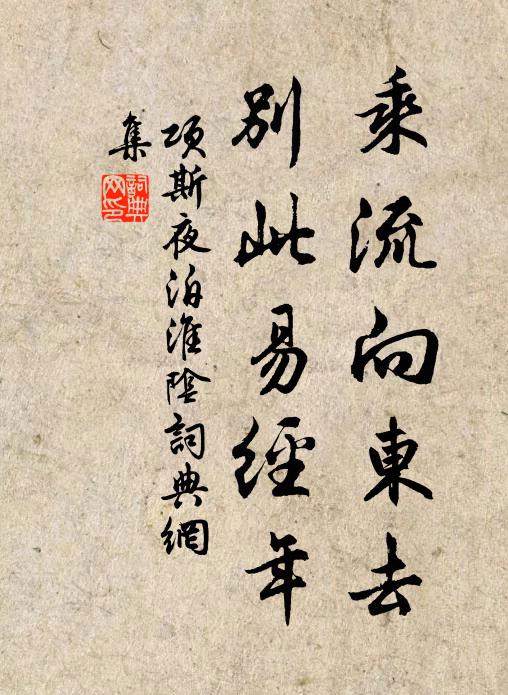 乘流向東去
別此易經年
項斯夜泊淮陰詞典網
集
詞典網印